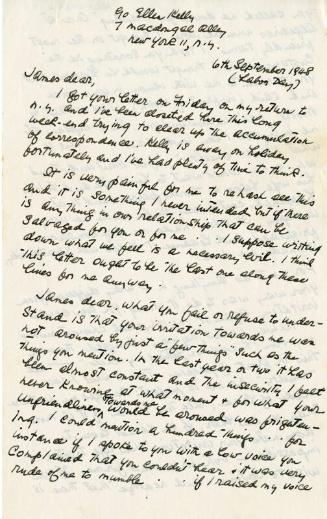 c/o Ellen Kelly
7 macdougal alley
new York 11, n.y.
6th September 1948
(Labor Day)
James dear,
I got your letter on Friday on my return to
n.y. and I've been closeted here this long
week-end trying to clear up the accumulation
of correspondence. Kelly is away on holiday
fortunately and I've had plenty of time to think.
It is very painful for me to rehash all this
and it is something I never intended but if there
is anything in our relationship that can be
salvaged for you or for me . . . I suppose writing
down what we feel is a necessary evil. I think
this letter ought to be the last one along these
lines for me anyway.
James dear, what you fail or refuse to under-
stand is that your irritation towards me was
not aroused by just a few things such as the
things you mention. In the last year or two it has
been almost constant and the insecurity I felt
never knowing at what moment & for what your
unfriendliness towards me would be aroused was frighten-
ing. I could mention a hundred things . . . for
instance if I spoke to you with a low voice you
complained that you couldn't hear & it was very
rude of me to mumble . . . if I raised my voice